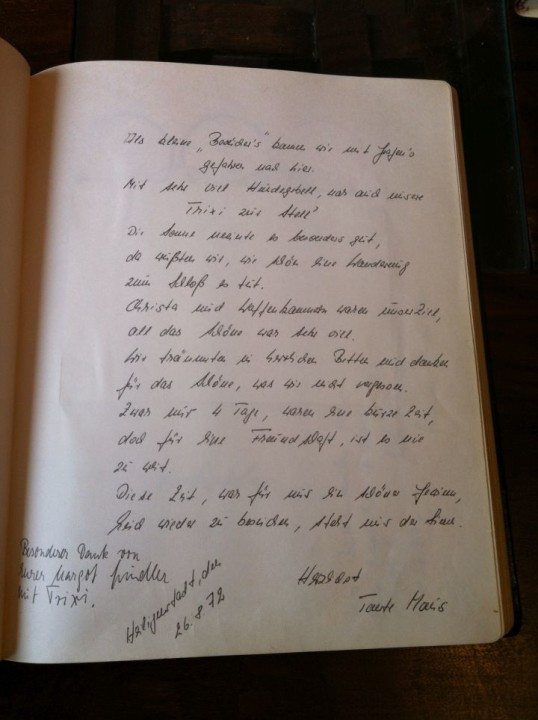 Als kleine „Besucher's" kamen wir mit
gefahren nach hier.
Mit sehr viel Hundegebell, war auch unsere
Trixi zur Stell'
Die Sonne meinte es besonders gut,
da wußten wir, wie schön eine Wanderung
zum Schloß es tut.
Christa und Waffenkammer waren unser Ziel,
all das Schöne war sehr viel.
Wir träumten in Betten und danken
für das Schöne, was wir nicht vergessen.
Zwar nur 4 Tage, waren eine kurze Zeit,
doch für eine Freundschaft, ist es nie
zu weit.
Diese Zeit, war für uns ein schöner Gewinn,
Euch wieder zu besuchen, steht uns der Sinn.
Herzlichst
Tante Maus
Besonderer Dank von
Eurer Margot
mit Trixi.
Heiligenstadt, den
26.8.72